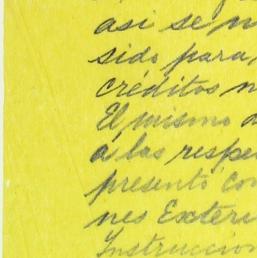 así se m
sido para
créditos n
El mismo d
á las respe
presentó con
nes Exteri
Instruccion